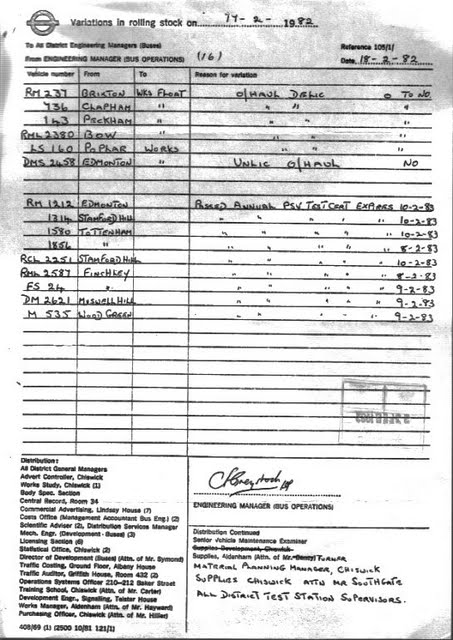 Variations in rolling stock on 17-2-1982
To All District Engineering Managers (Buses)
Reference 105/1/
From ENGINEERING MANAGER (BUS OPERATIONS) (16)
Date 18-2-82
Vehicle number From To Reason for variation
RM 237 BRIXTON WKS FLOAT O/HAUL DELIC O TO NO.
736 CLAPHAM " " " "
143 PECKHAM " " "
RML 2380 BOW " " "
LS 160 POPLAR WORKS " "
DMS 2458 EDMONTON " UNLIC O/HAUL NO
RM 1212 EDMONTON PASSED ANNUAL PSV TEST CERT EXPIRES 10-2-83
1314 STAMFORD HILL " " " " 10-2-83
1580 TOTTENHAM " " " " 10-2-83
1856 " " " " " 8-2-83
RCL 2251 STAMFORD HILL " " " " 10-2-83
RML 2587 FINCHLEY " " " " 8-2-83
FS 24 " " " " " 9-2-83
DM 2621 MUSWELL HILL " " " " 9-2-83
M 535 WOOD GREEN " " " " 9-2-83
Distribution:
All District General Managers
Advert Controller, Chiswick
Works Study, Chiswick (1)
Body Spec. Section
Central Record, Room 34
Commercial Advertising, Lindsay House (7)
Costs Office (Management Accountant Bus Eng.) (2)
Scientific Adviser (2), Distribution Services Manager
Mech. Engr. (Development - Buses) (3)
Licensing Section (6)
Statistical Office, Chiswick (2)
Director of Development (Buses) (Attn. of Mr. Symond)
Traffic Costing, Ground Floor, Albany House
Traffic Auditor, Griffith House, Room 432 (2)
Operations Systems Officer 210-212 Baker Street
Training School, Chiswick (Attn. of Mr. Carter)
Development Engr., Signalling, Telstar House
Works Manager, Aldenham (Attn. of Mr. Hayward)
Purchasing Officer, Chiswick (Attn. of Mr. Hiller)
408/69 (1) (2500 10/81 121/1)
ENGINEERING MANAGER (BUS OPERATIONS)
Distribution Continued
Senior Vehicle Maintenance Examiner
Supplies Development, Chiswick
Supplies, Aldenham (Attn. of Mr. TURNER
MATERIAL PLANNING MANAGER, CHISWICK
SUPPLIES CHISWICK ATTN MR SOUTHGATE
ALL DISTRICT TEST STATION SUPERVISORS.